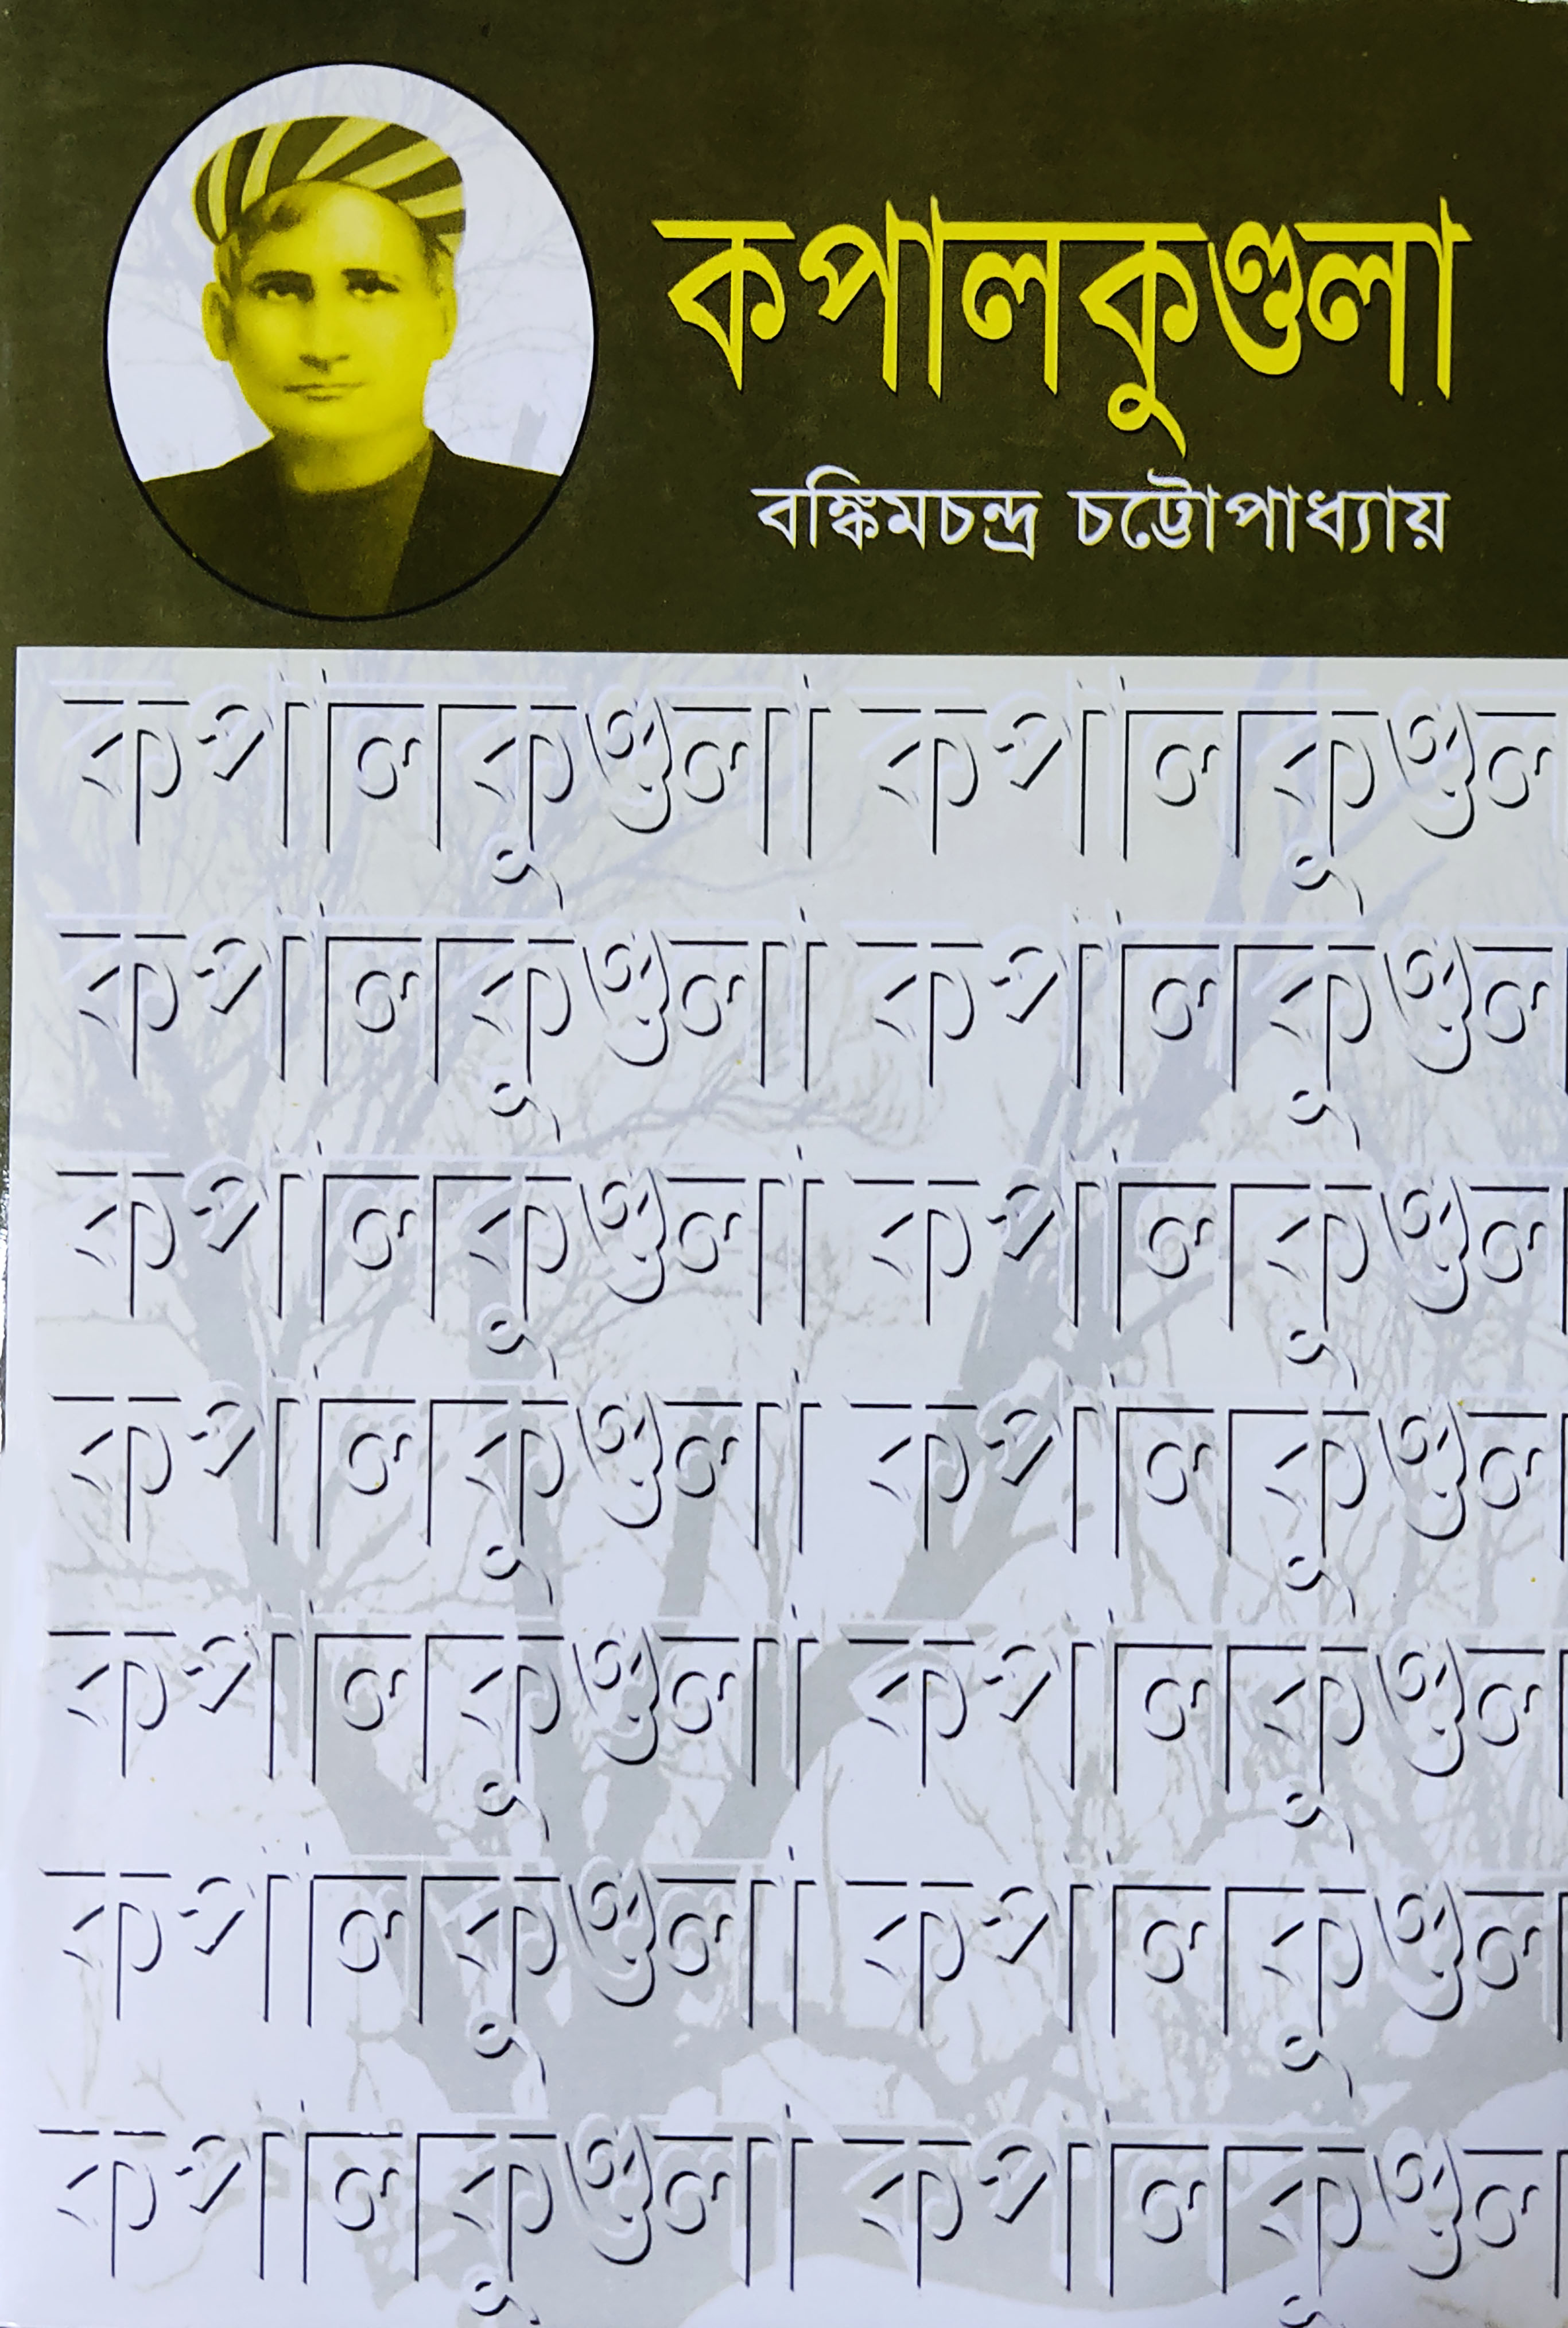 কপালকুণ্ডলা
বঙ্কিমচন্দ্র চট্টোপাধ্যায়
কপালকুণ্ডলা কপালকুণ্ডল
কপালকুণ্ডলা কপালকুণ্ডল
কপালকুণ্ডলা কপালকুণ্ডল
কপালকুণ্ডলা কপালকুণ্ডল
কপালকুণ্ডলা কপালকুণ্ডল
কপালকুণ্ডলা কপালকুণ্ডল
কপালকুণ্ডলা কপালকুণ্ডল